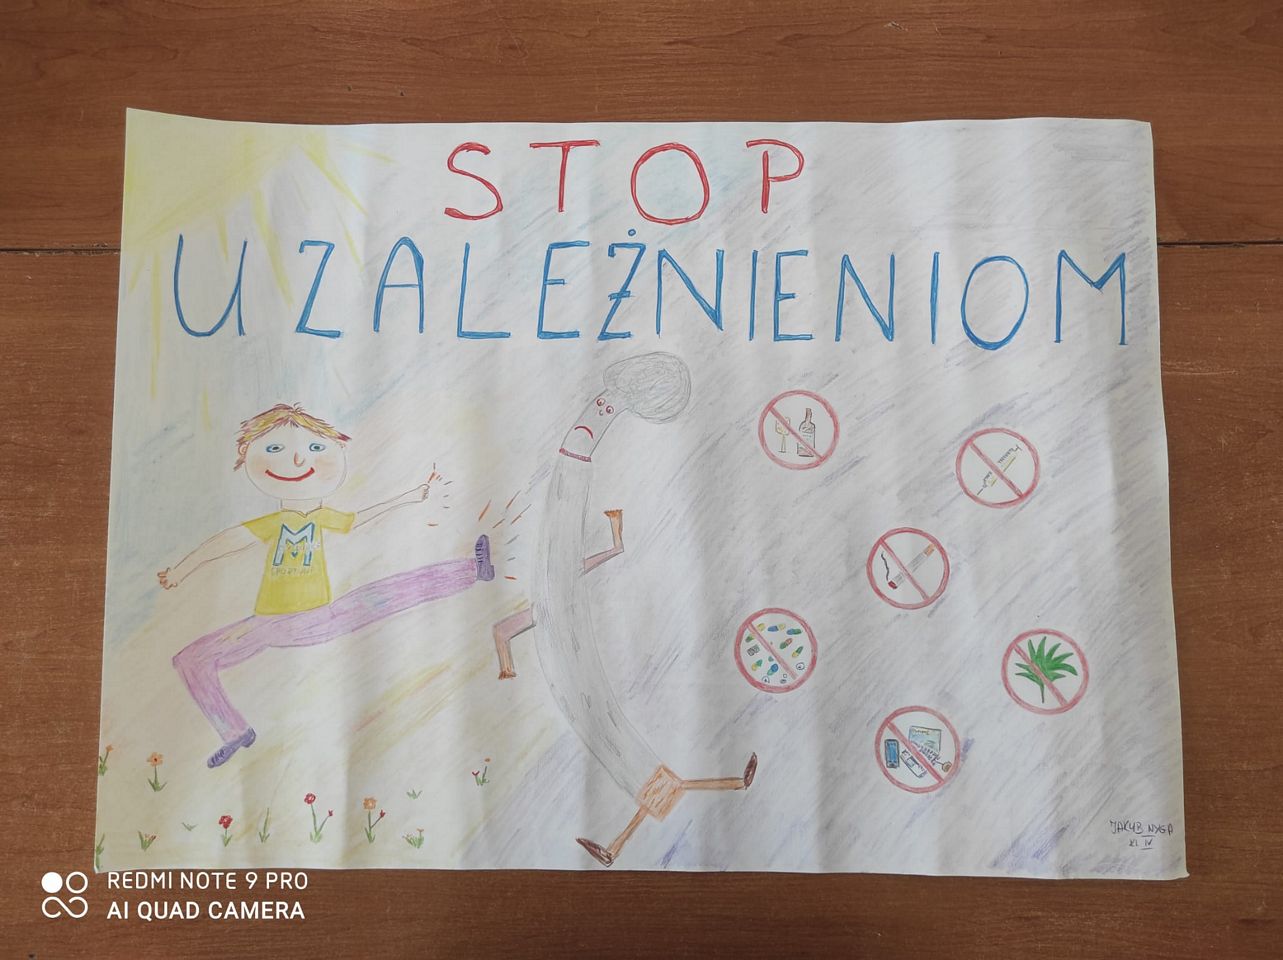 STOP
UZALEŻNIENIOM
M
JAKUB NYGA
KL IV
REDMI NOTE 9 PRO
AI QUAD CAMERA